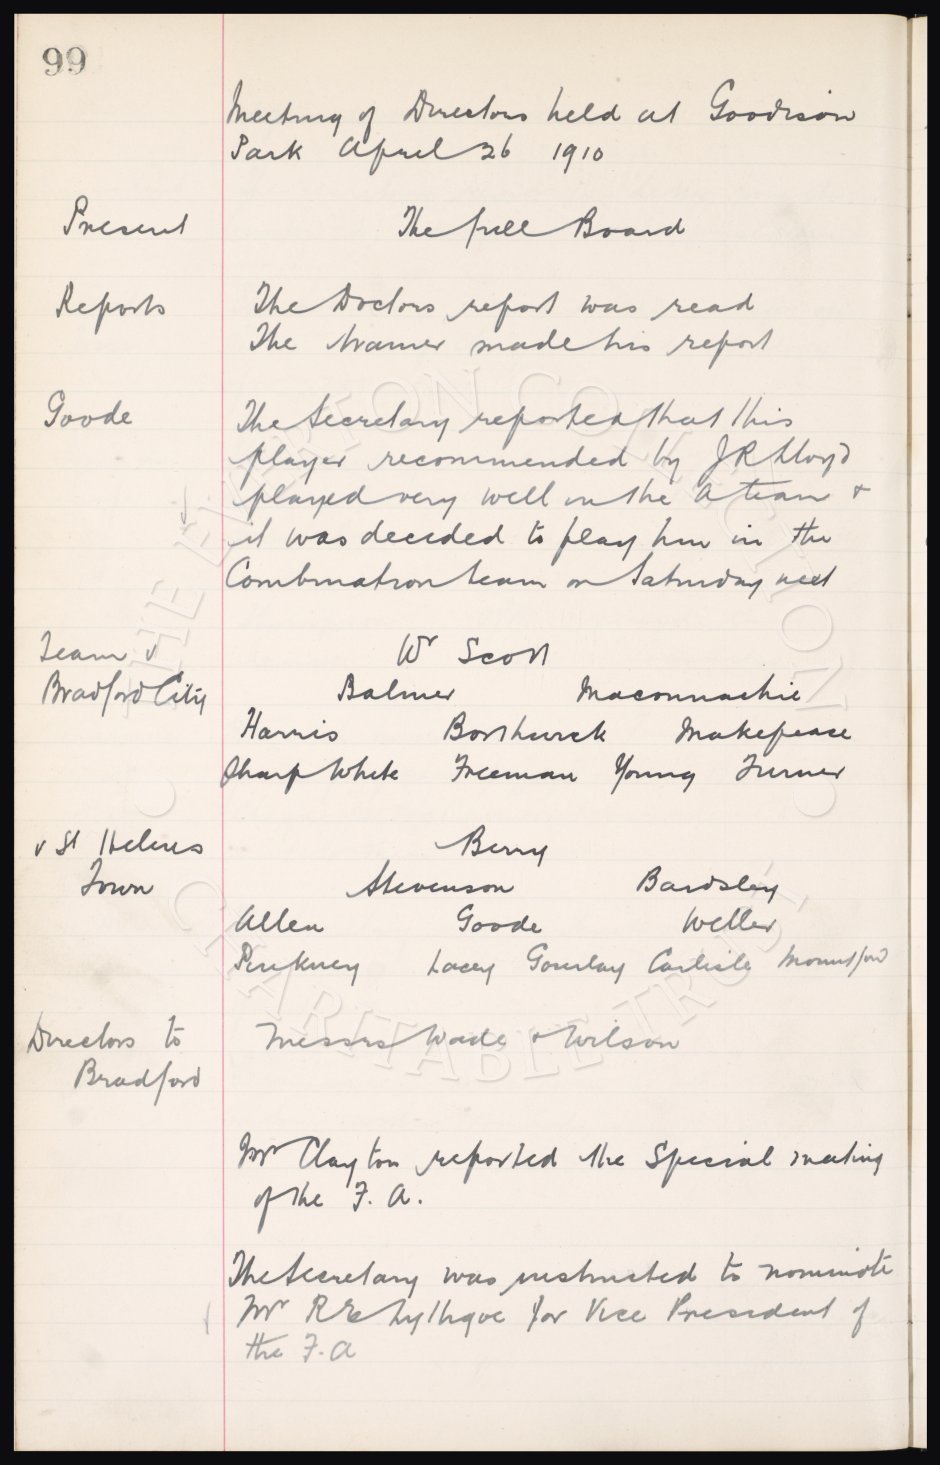 99
Meeting of Directors held at Goodison
Park April 26 1910
Present The full Board
Reports The Doctors report was read
The trainer made his report
Goode The Secretary reported that this
player recommended by J R Lloyd
played very well in the A team &
it was decided to play him in the
Combination team on Saturday next
Team v Wr Scott
Bradford City Balmer Maconnachie
Harris Borthwick Makepeace
Sharp White Freeman Young Turner
v St Helens Berry
Town Stevenson Bardsley
Allen Goode Weller
Pinkney Lacey Gourlay Carlisle Mountford
Directors to Messrs Wade & Wilson
Bradford
Mr Clayton reported the Special meeting
of the F. A.
The Secretary was instructed to nominate
Mr R E Lythgoe for Vice President of
the F. A
THE EVERTON COLLECTION
CHARITABLE TRUST